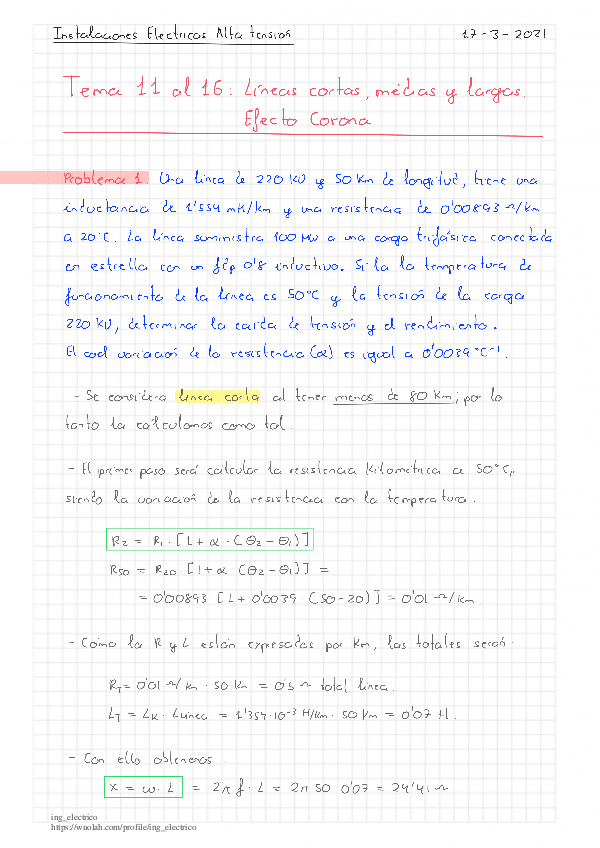 Instalaciones Electricas Alta tensión 17-3-2021
Tema 11 al 16: Líneas cortas, médias y largas.
Efecto Corona
Problema 1. Una línea de 220 KV y 50 Km de longitud, tiene una
inductancia de 1'354 mH/km y una resistencia de 0'00893 Ω/km
a 20°C. La línea suministra 100 MW a una carga trifásica conectada
en estrella con un fdp 0'8 inductivo. Si la la temperatura de
funcionamiento de la línea es 50°C y la tensión de la carga
220 KV, determinar la caída de tensión y el rendimiento.
El coef variación de la resistencia (α) es igual a 0'0039 °C⁻¹.
- Se considera línea corta al tener menos de 80 Km; por lo
tanto la calculamos como tal.
- El primer paso será calcular la resistencia Kilométrica a 50°C,
siendo la variación de la resistencia con la temperatura.
R₂ = R₁ · [1 + α · (θ₂ - θ₁)]
R₅₀ = R₂₀ [1 + α (θ₂ - θ₁)] =
= 0'00893 [1 + 0'0039 (50 - 20)] = 0'01 Ω/km
- Como la R y L están expresadas por Km, las totales serán:
R_T = 0'01 Ω/km · 50 Km = 0'5 Ω total línea.
L_T = L_K · L línea = 1'354·10⁻³ H/Km · 50 Km = 0'07 H.
- Con ello obtenemos
X = ω · L = 2π f · L = 2π 50 0'07 = 24'41 Ω
ing_electrico
https://wuolah.com/profile/ing_electrico